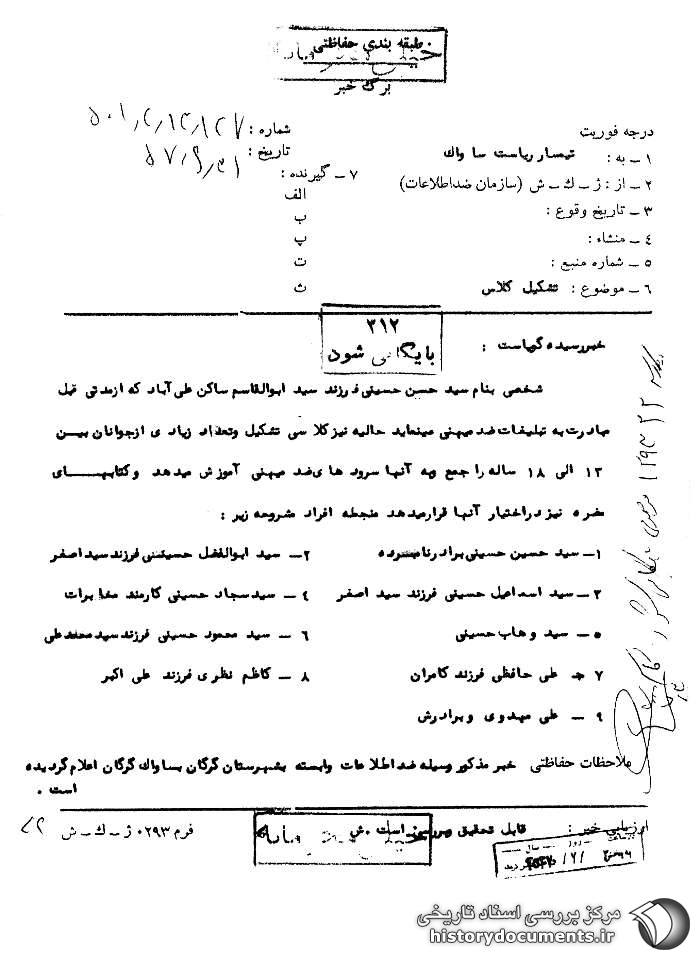 طبقه بندی حفاظتی
برگ خبر
درجه فوریت
شماره : ۵۰۱/۲/۱۴/۱۲۷
۱ – به : تیمسار ریاست ساواک
تاریخ :
۲ – از : ژ – ک – ش (سازمان ضداطلاعات)
۷ – گیرنده :
الف
۳ – تاریخ وقوع :
ب
۴ – منشاء :
پ
۵ – شماره منبع :
ت
۶ – موضوع : تشکیل کلاس
ث
۳۱۲
بایگانی شود
خبر رسیده گویاست :
شخصی بنام سید حسن حسینی فرزند سید ابوالقاسم ساکن علی آباد که از مدتی قبل
مبادرت به تبلیغات ضد میهنی مینماید حالیه نیز کلاسی تشکیل و تعداد زیادی از جوانان بین
۱۳ الی ۱۸ ساله را جمع و به آنها سرود های ضد میهنی آموزش میدهد و کتابهای
مضره نیز در اختیار آنها قرار میدهد منجمله افراد مشروحه زیر :
۱– سید حسین حسینی برادر نامبرده
۲– سید ابوالفضل حسینی فرزند سید اصغر
۳– سید اسماعیل حسینی فرزند سید اصغر
۴ – سید سجاد حسینی کارمند مخابرات
۵– سید وهاب حسینی
۶ – سید محمود حسینی فرزند سید محمد علی
۷ – علی حافظی فرزند کامران
۸ – کاظم نظری فرزند علی اکبر
۹ – علی مهدوی و برادرش
ملاحظات حفاظتی خبر مذکور وسیله ضد اطلاعات وابسته بشهرستان گرگان بساواک گرگان اعلام گردیده
است .
ارزیابی خبر : قابل تحقیق و بررسی است . ش
فرم ۰۲۹۳ ژ – ک – ش
مرکز بررسی اسناد تاریخی
historydocuments.ir